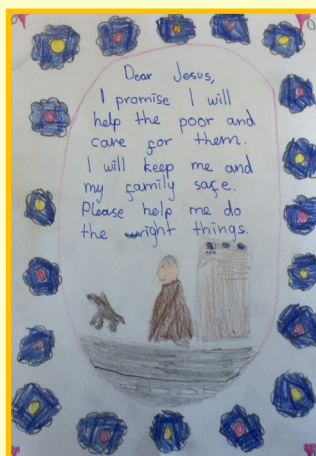 Dear Jesus,
I promise I will
help the poor and
care for them.
I will keep me and
my family safe.
Please help me do
the right things.